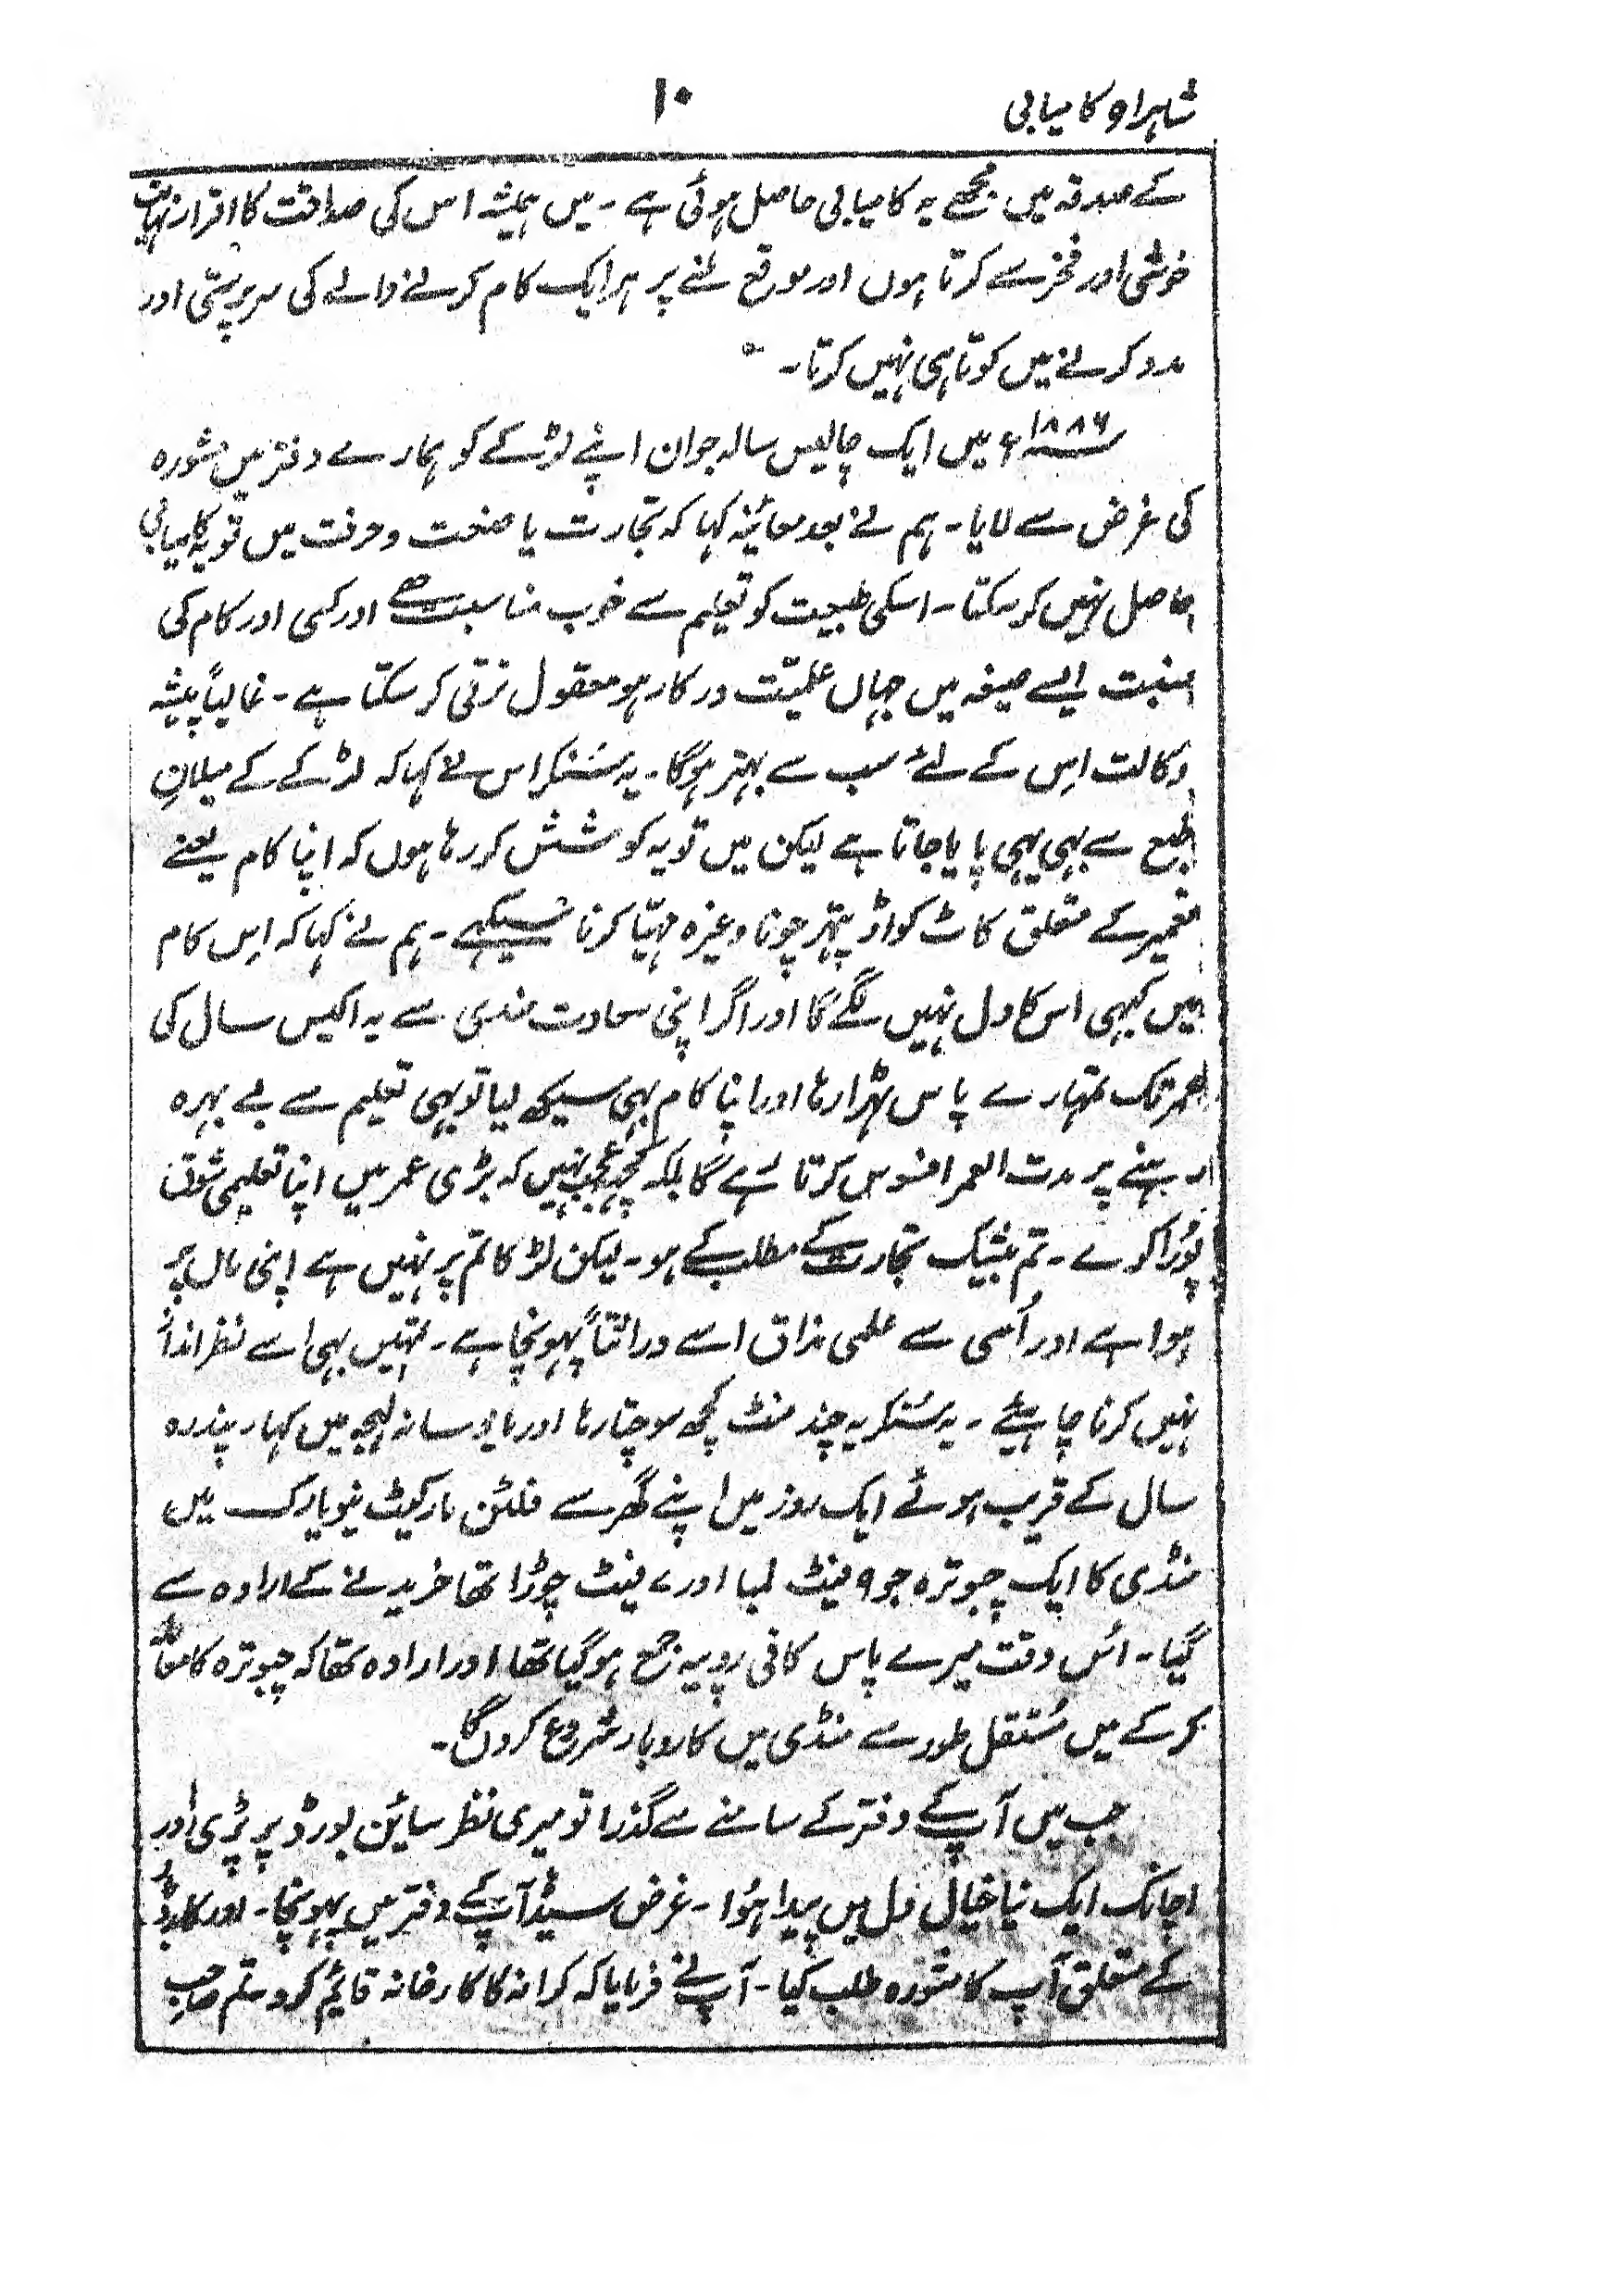 شاہراہ کامیابی
۱۰
کے صدقہ میں مجھے یہ کامیابی حاصل ہوئی ہے ۔ میں ہمیشہ اس کی صداقت کا اقرار نہایت
خوشی اور فخر سے کرتا ہوں اور موقع ملنے پر ہر ایک کام کرنے والے کی سرپرستی اور
مدد کرنے میں کوتاہی نہیں کرتا ۔
۱۸۸۶ء میں ایک چالیس سالہ جوان اپنے لڑکے کو ہمارے دفتر میں مشورہ
کی غرض سے لایا ۔ ہم نے بعد معائنہ کہا کہ تجارت یا صنعت و حرفت میں تو یہ کامیابی
حاصل نہیں کر سکتا ۔ اسکی طبیعت کو تعلیم سے خوب مناسبت ہے اور کسی اور کام کی
نسبت ایسے صیغہ میں جہاں علمیّت درکار ہو معقول ترقی کر سکتا ہے ۔ غالباً پیشہ
وکالت اِس کے لئے سب سے بہتر ہوگا ۔ یہ سُنکر اس نے کہا کہ لڑکے کے میلانِ
طبع سے بہی یہی پایا جاتا ہے لیکن میں تو یہ کوشش کر رہا ہوں کہ اپنا کام یعنے
تعمیر کے متعلق کاٹ کواڑ پتہر چونا وغیرہ مہیّا کرنا سیکہے ۔ ہم نے کہا کہ اِس کام
میں کبہی اس کا دل نہیں لگے گا اور اگر اپنی سعادت مندی سے یہ اکیس سال کی
عمر تک تمہارے پاس ٹہرا رہا اور اپنا کام بہی سیکھ لیا تو بہی تعلیم سے بے بہرہ
رہنے پر مدت العمر افسوس کرتا رہے گا بلکہ کچھ عجب نہیں کہ بڑی عمر میں اپنا تعلیمی شوق
پُورا کرے ۔ تم بیشک تجارت کے مطلب کے ہو ۔ لیکن لڑکا تم پر نہیں ہے اپنی ماں پر
ہوا ہے اور اُسی سے علمی مذاق اسے وراثتاً پہونچا ہے ۔ تمہیں بہی اسے نظر انداز
نہیں کرنا چاہیئے ۔ یہ سُنکر یہ چند منٹ کچھ سوچتا رہا اور مایوسانہ لہجہ میں کہا ۔ پندرہ
سال کے قریب ہوئے ایک روز میں اپنے گھر سے فلٹن مارکیٹ نیویارک میں
منڈی کا ایک چبوترہ جو ۹ فیٹ لمبا اور ۷ فیٹ چوڑا تھا خریدنے کے ارادہ سے
گیا ۔ اس وقت میرے پاس کافی روپیہ جمع ہو گیا تھا اور ارادہ تھا کہ چبوترہ کا معاملہ
کر کے میں مُستقل طور سے منڈی میں کاروبار شروع کروں گا ۔
جب میں آپ کے دفتر کے سامنے سے گذرا تو میری نظر سائین بورڈ پر پڑی اور
اچانک ایک نیا خیال دل میں پیدا ہُوا ۔ غرض سیدہا آپ کے دفتر میں پہونچا ۔ اور کاروبار
کے متعلق آپ کا مشورہ طلب کیا ۔ آپ نے فرمایا کہ کرانہ کا کارخانہ قایم کرو تم صاحبِ